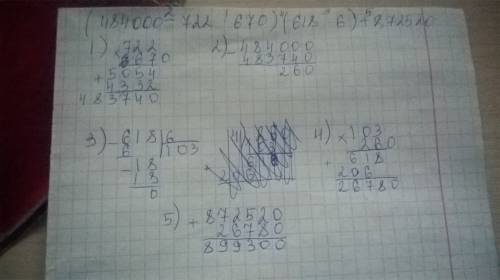 (484000-722*670)*(618:6)+872520
1) ×722
670
+5054
4332
483740
2) -484000
483740
260
3) -618|6
6 103
-18
18
0
4) ×103
260
+618
206
26780
5) +872520
26780
899300